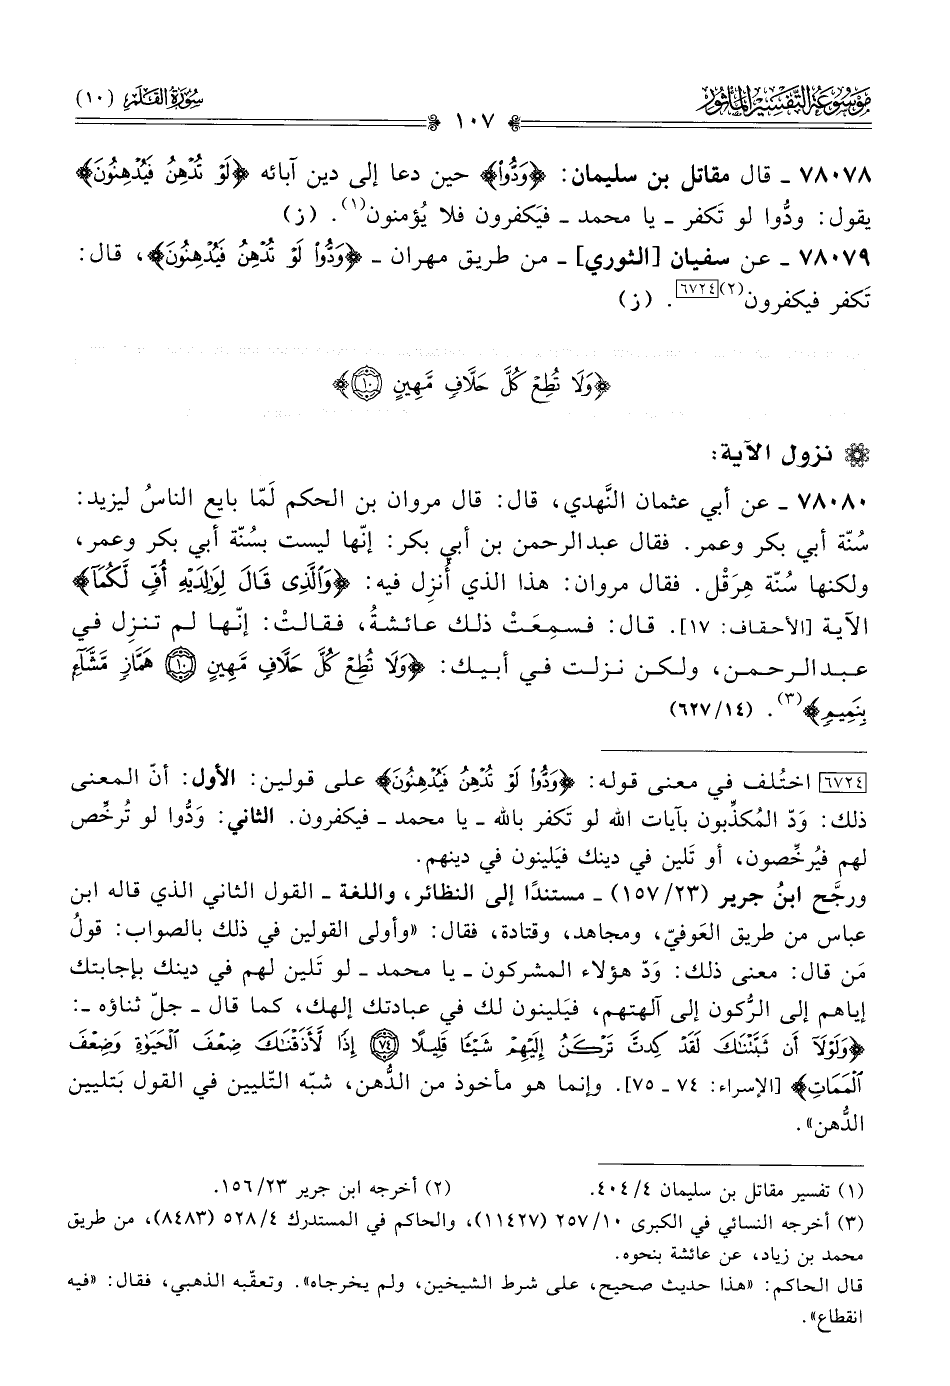 موسوعة التفسير المأثور
سورة القلم (١٠)
١٠٧
٧٨٠٧٨ ـ قال مقاتل بن سليمان: ﴿وَدُّوا۟﴾ حين دعا إلى دين آبائه ﴿لَوْ تُدْهِنُ فَيُدْهِنُونَ﴾
يقول: ودُّوا لو تَكفر ـ يا محمد ـ فيَكفرون فلا يُؤمنون(١). (ز)
٧٨٠٧٩ ـ عن سفيان [الثوري] ـ من طريق مهران ـ ﴿وَدُّوا۟ لَوْ تُدْهِنُ فَيُدْهِنُونَ﴾، قال:
تَكفر فيكفرون(٢)[٦٧٢٤]. (ز)
﴿وَلَا تُطِعْ كُلَّ حَلَّافٍ مَّهِينٍ ۝١٠﴾
نزول الآية:
٧٨٠٨٠ ـ عن أبي عثمان النَّهدي، قال: قال مروان بن الحكم لَمّا بايع الناسُ ليزيد:
سُنّة أبي بكر وعمر. فقال عبدالرحمن بن أبي بكر: إنّها ليست بسُنّة أبي بكر وعمر،
ولكنها سُنّة هِرَقْل. فقال مروان: هذا الذي أُنزِل فيه: ﴿وَٱلَّذِى قَالَ لِوَٰلِدَيْهِ أُفٍّ لَّكُمَآ﴾
الآية [الأحقاف: ١٧]. قال: فسمِعَتْ ذلك عائشةُ، فقالتْ: إنّها لم تنزِل في
عبدالرحمن، ولكن نزلت في أبيك: ﴿وَلَا تُطِعْ كُلَّ حَلَّافٍ مَّهِينٍ ۝١٠ هَمَّازٍ مَّشَّآءٍ
بِنَمِيمٍ﴾(٣). (١٤/ ٦٢٧)
[٦٧٢٤] اختُلف في معنى قوله: ﴿وَدُّوا۟ لَوْ تُدْهِنُ فَيُدْهِنُونَ﴾ على قولين: الأول: أنّ المعنى
ذلك: وَدّ المُكذِّبون بآيات الله لو تَكفر بالله ـ يا محمد ـ فيكفرون. الثاني: وَدُّوا لو تُرخِّص
لهم فيُرخِّصون، أو تَلين في دينك فيَلينون في دينهم.
ورجَّح ابنُ جرير (٢٣/ ١٥٧) ـ مستندًا إلى النظائر، واللغة ـ القول الثاني الذي قاله ابن
عباس من طريق العَوفيّ، ومجاهد، وقتادة، فقال: «وأولى القولين في ذلك بالصواب: قولُ
مَن قال: معنى ذلك: وَدّ هؤلاء المشركون ـ يا محمد ـ لو تَلين لهم في دينك بإجابتك
إياهم إلى الرُّكون إلى آلهتهم، فيَلينون لك في عبادتك إلهك، كما قال ـ جلّ ثناؤه ـ:
﴿وَلَوْلَآ أَن ثَبَّتْنَٰكَ لَقَدْ كِدتَّ تَرْكَنُ إِلَيْهِمْ شَيْـًٔا قَلِيلًا ۝٧٤ إِذًا لَّأَذَقْنَٰكَ ضِعْفَ ٱلْحَيَوٰةِ وَضِعْفَ
ٱلْمَمَاتِ﴾ [الإسراء: ٧٤ ـ ٧٥]. وإنما هو مأخوذ من الدُّهن، شبّه التّليين في القول بَتليين
الدُّهن».
(١) تفسير مقاتل بن سليمان ٤/ ٤٠٤. (٢) أخرجه ابن جرير ٢٣/ ١٥٦.
(٣) أخرجه النسائي في الكبرى ١٠/ ٢٥٧ (١١٤٢٧)، والحاكم في المستدرك ٤/ ٥٢٨ (٨٤٨٣)، من طريق
محمد بن زياد، عن عائشة بنحوه.
قال الحاكم: «هذا حديث صحيح، على شرط الشيخين، ولم يخرجاه». وتعقّبه الذهبي، فقال: «فيه
انقطاع».